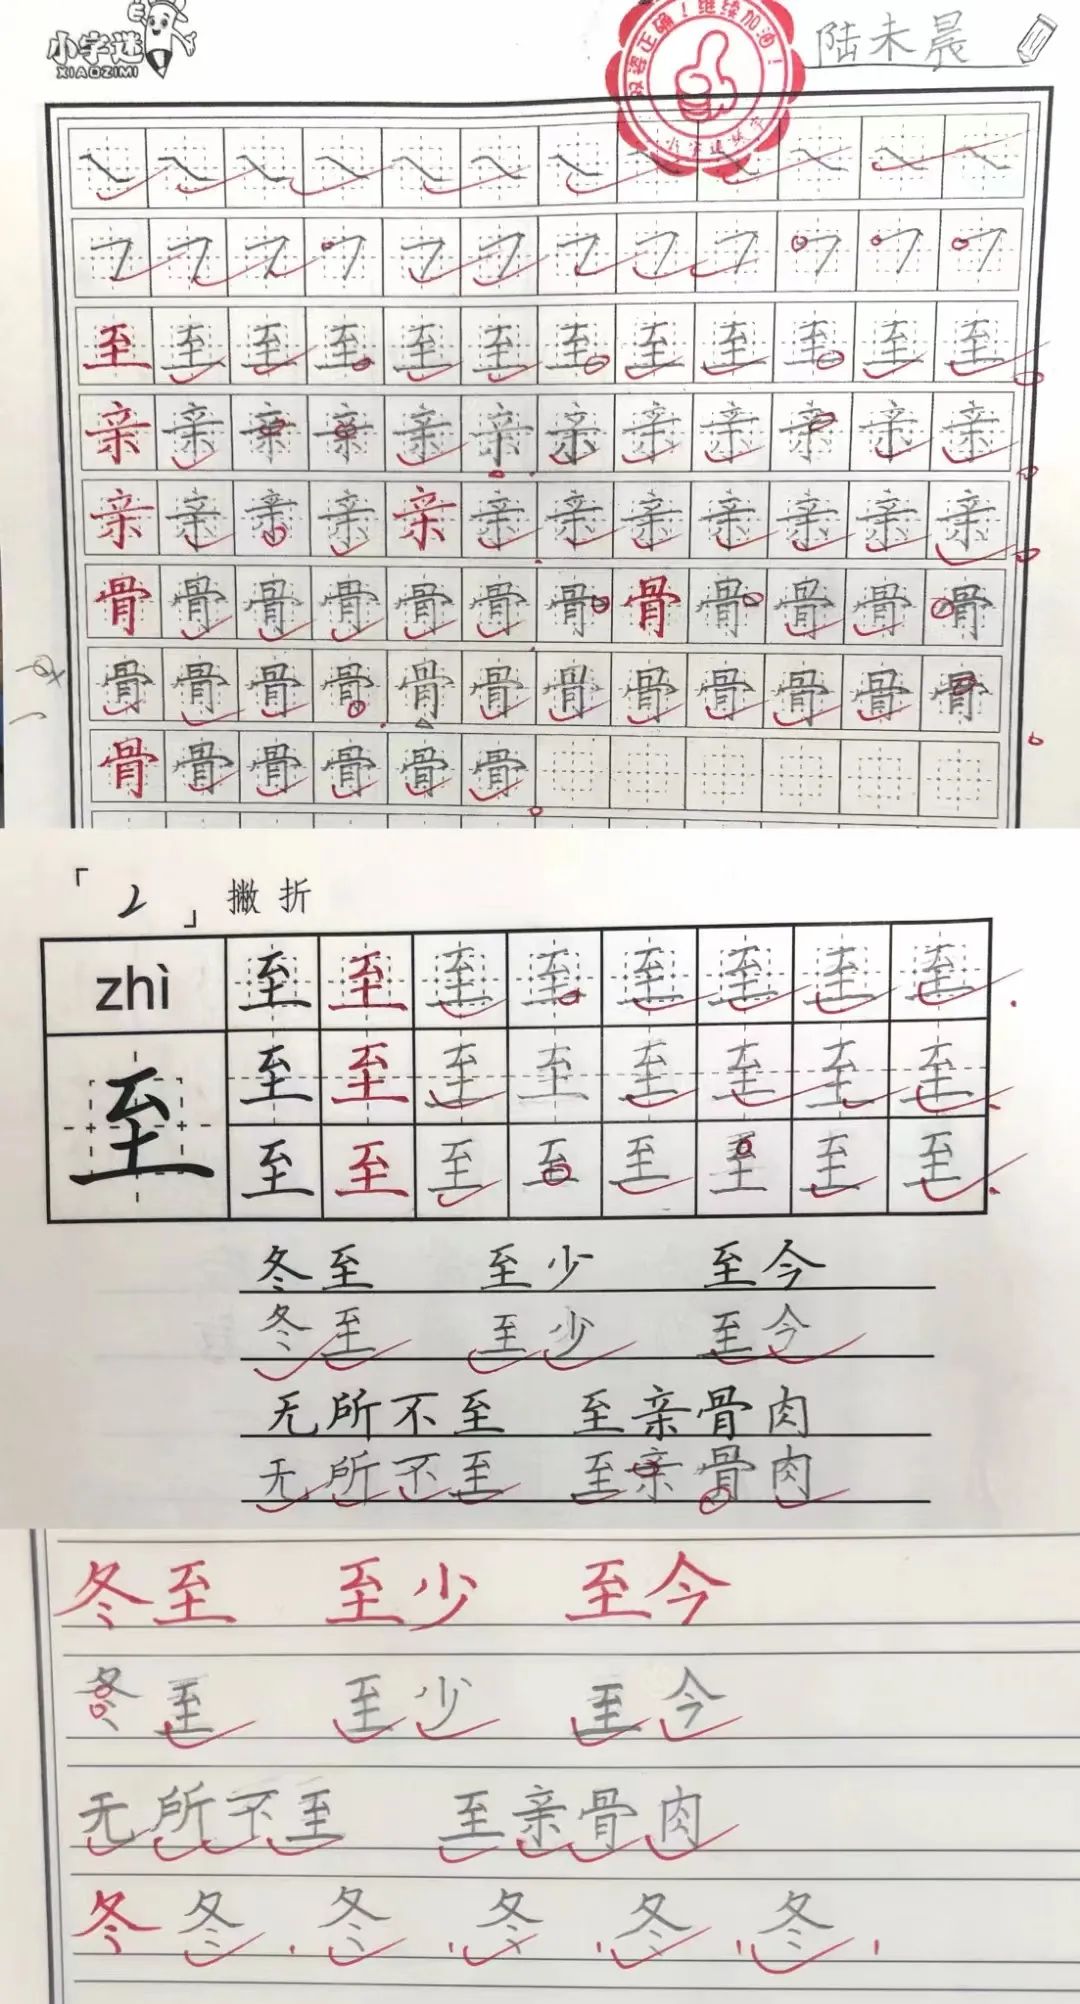 小字迷
XIAOZIMI
双姿正确！继续加油！
小字迷练字
陆未晨
至至至至至至至至至至至至
亲亲亲亲亲亲亲亲亲亲亲亲
亲亲亲亲亲亲亲亲亲亲亲亲
骨骨骨骨骨骨骨骨骨骨骨骨
骨骨骨骨骨骨骨骨骨骨骨骨
骨骨骨骨骨骨
「2」撇折
zhì 至至至至至至至至
至 至至至至至至至至
至至至至至至至至
冬至 至少 至今
冬至 至少 至今
无所不至 至亲骨肉
无所不至 至亲骨肉
冬至 至少 至今
冬至 至少 至今
无所不至 至亲骨肉
冬冬 冬 冬 冬 冬